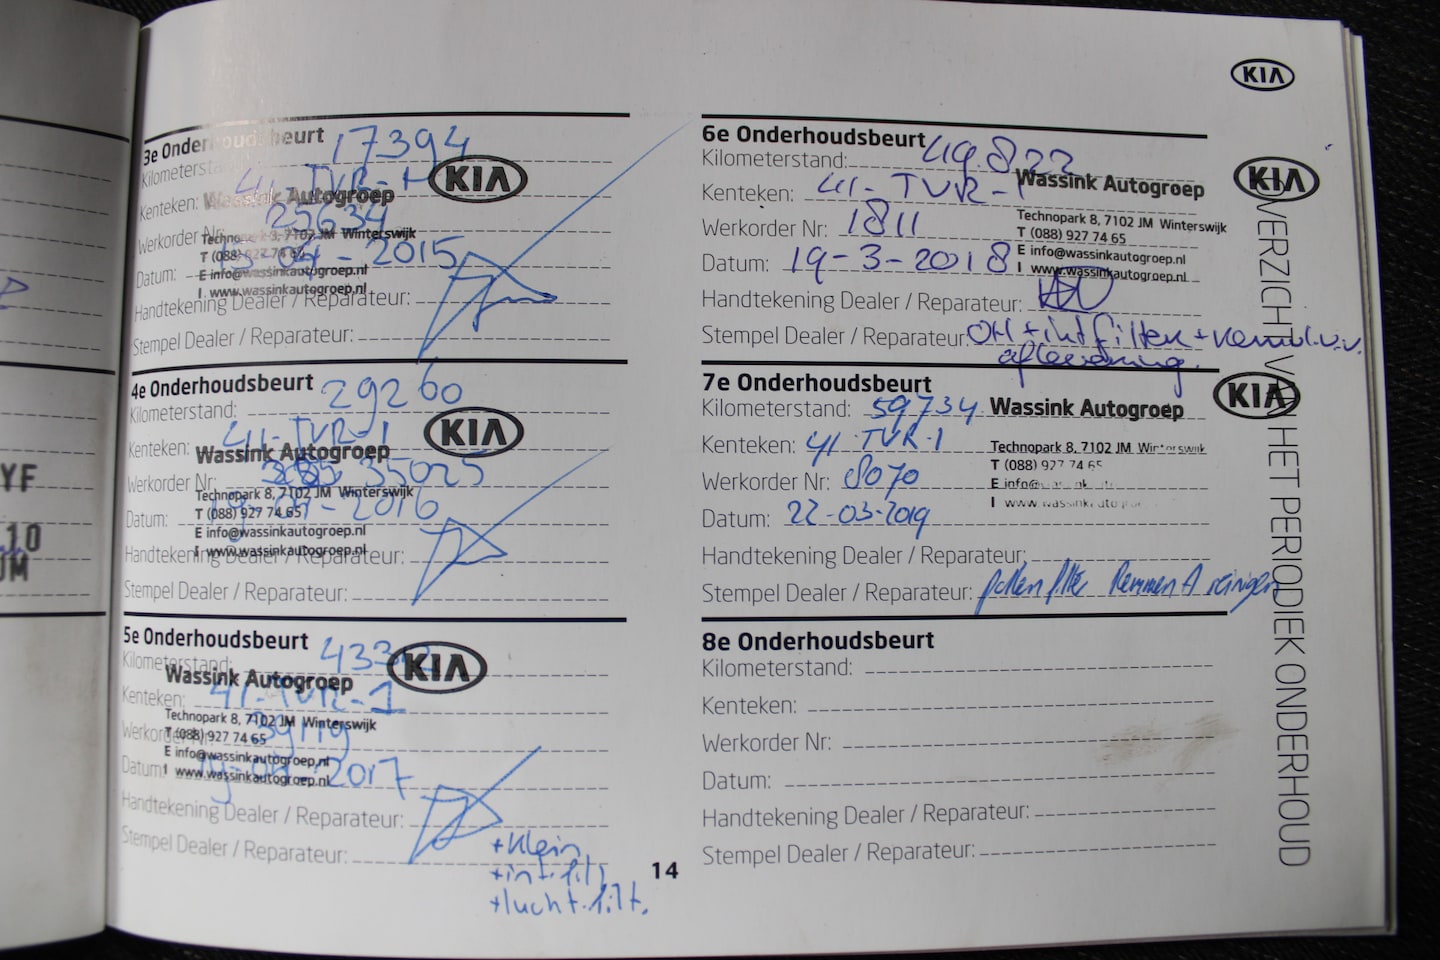 YF
10
UM
3e Onderhoudsbeurt 17394
Kilometerstand:
Kenteken: 41-TVR-1
KIA
Wassink Autogroep
Werkorder Nr: 25634
Technopark 8, 7102 JM Winterswijk
T (088) 927 74 65
Datum: 2015
E info@wassinkautogroep.nl
I www.wassinkautogroep.nl
Handtekening Dealer / Reparateur:
Stempel Dealer / Reparateur:
4e Onderhoudsbeurt 29260
Kilometerstand:
Kenteken: 41-TVR-1
KIA
Wassink Autogroep
Werkorder Nr: 35025
Technopark 8, 7102 JM Winterswijk
T (088) 927 74 65
Datum: 2016
E info@wassinkautogroep.nl
I www.wassinkautogroep.nl
Handtekening Dealer / Reparateur:
Stempel Dealer / Reparateur:
5e Onderhoudsbeurt
Kilometerstand:
KIA
Wassink Autogroep
Kenteken: 41-TVR-1
Technopark 8, 7102 JM Winterswijk
Werkorder Nr:
T (088) 927 74 65
E info@wassinkautogroep.nl
Datum: 2017
I www.wassinkautogroep.nl
Handtekening Dealer / Reparateur:
Stempel Dealer / Reparateur:
+ Klein
+ int. filt
+ lucht.filt.
14
KIA
6e Onderhoudsbeurt
Kilometerstand: 49822
Kenteken: 41-TVR-1
Wassink Autogroep KIA
Werkorder Nr: 1811
Technopark 8, 7102 JM Winterswijk
T (088) 927 74 65
Datum: 19-3-2018
E info@wassinkautogroep.nl
I www.wassinkautogroep.nl
Handtekening Dealer / Reparateur:
Stempel Dealer / Reparateur: OH + int filter + v.v.
aflevering.
7e Onderhoudsbeurt
Kilometerstand: 59734
Wassink Autogroep KIA
Kenteken: 41-TVR-1
Technopark 8, 7102 JM Winterswijk
T (088) 927 74 65
Werkorder Nr: 8070
E info@
I www
Datum: 22-03-2019
Handtekening Dealer / Reparateur:
Stempel Dealer / Reparateur: pollen filter Remmen A reinigen
8e Onderhoudsbeurt
Kilometerstand:
Kenteken:
Werkorder Nr:
Datum:
Handtekening Dealer / Reparateur:
Stempel Dealer / Reparateur:
OVERZICHT VAN HET PERIODIEK ONDERHOUD